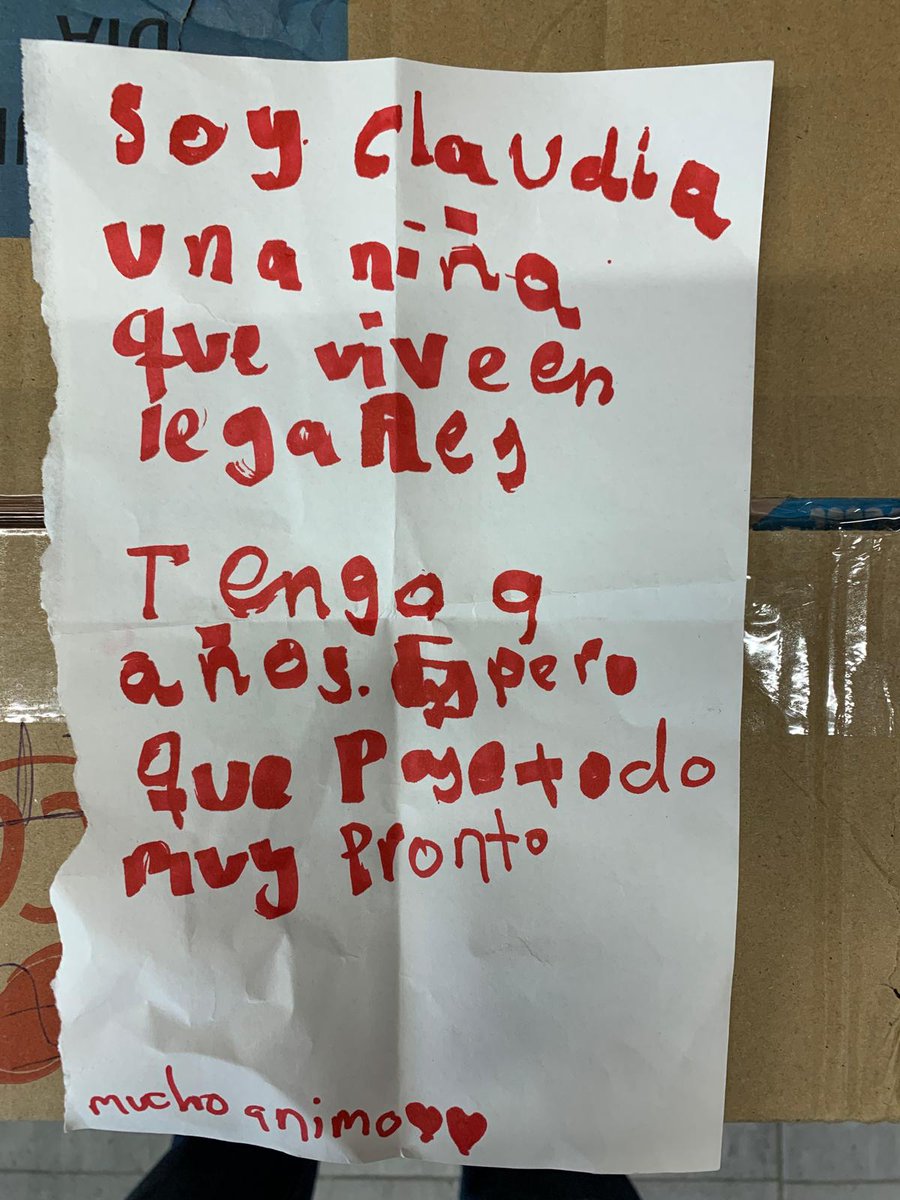 Soy Claudia
una niña
que vive en
legañes
Tengo 9
años. Espero
que Paye todo
muy pronto
mucho animo